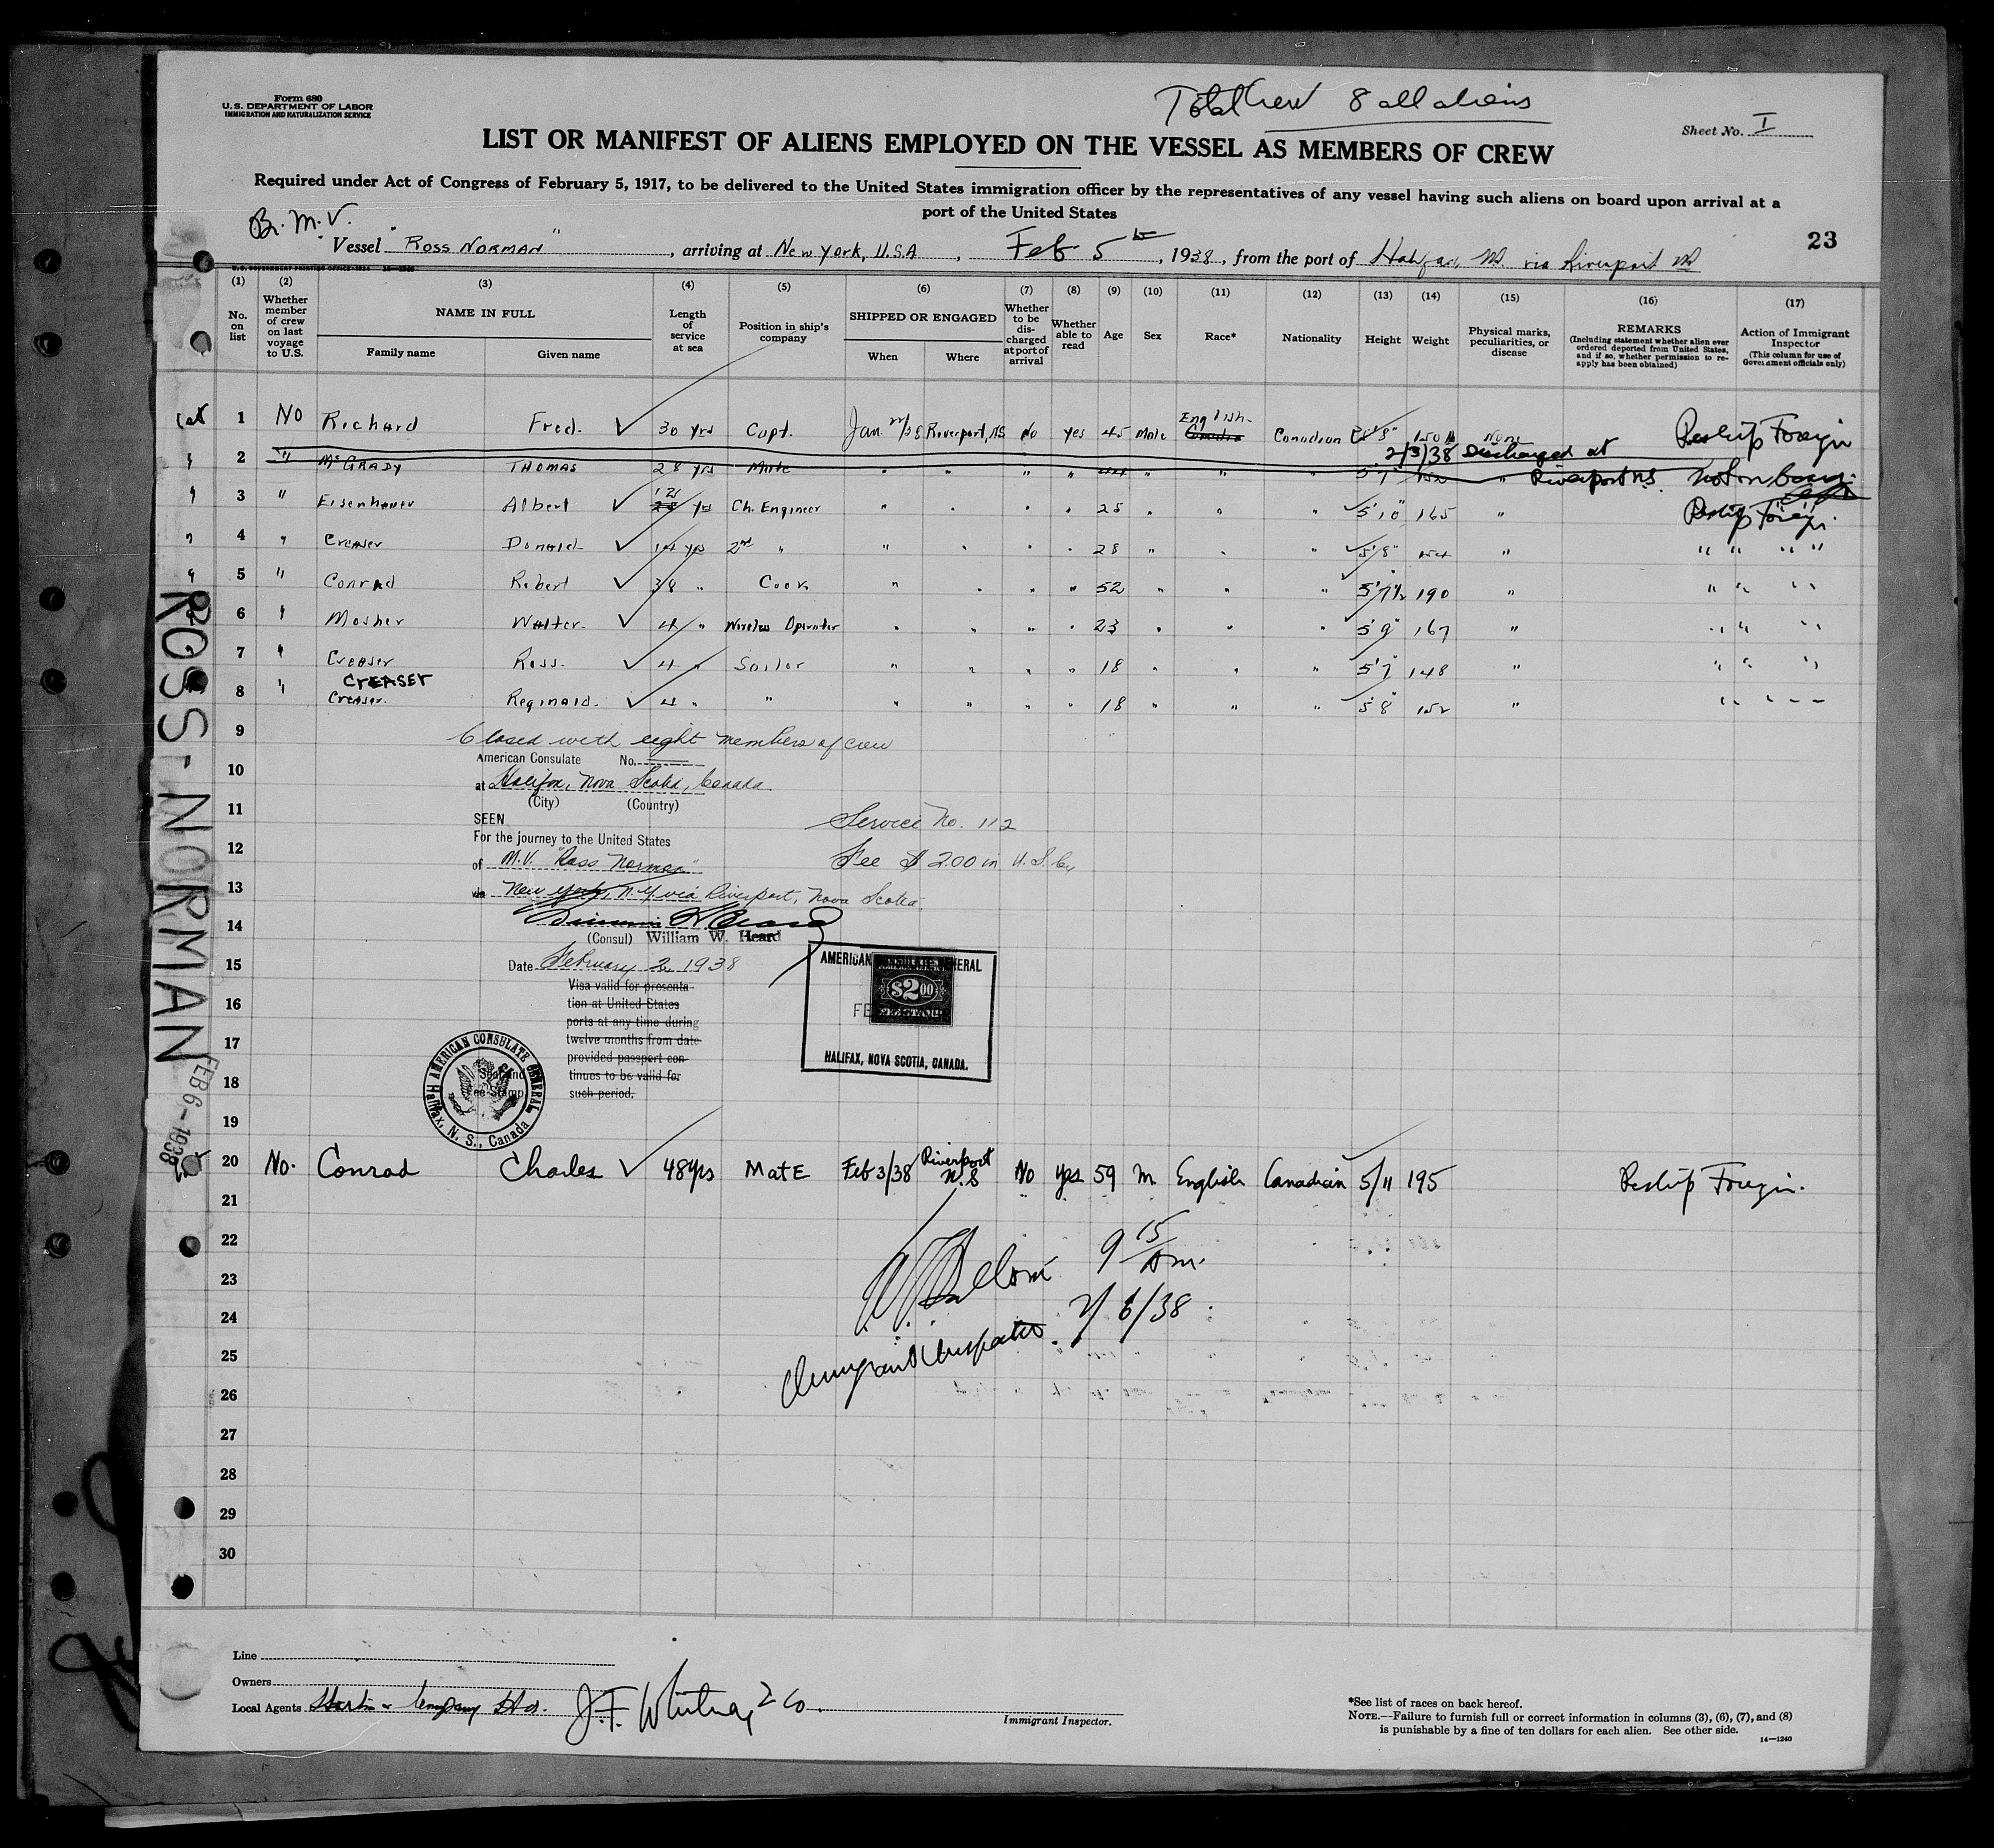 Form 680
U.S. DEPARTMENT OF LABOR
IMMIGRATION AND NATURALIZATION SERVICE
Total Crew 8 all aliens
Sheet No. I
LIST OR MANIFEST OF ALIENS EMPLOYED ON THE VESSEL AS MEMBERS OF CREW
Required under Act of Congress of February 5, 1917, to be delivered to the United States immigration officer by the representatives of any vessel having such aliens on board upon arrival at a
port of the United States
Br. M.V.
Vessel "Ross Norman", arriving at New York, U.S.A, Feb 5th, 1938, from the port of Halifax, NS. via Riverport NS
23
U.S. GOVERNMENT PRINTING OFFICE: 1934 14-1240
(1) No. on list
(2) Whether member of crew on last voyage to U.S.
(3) NAME IN FULL Family name Given name
(4) Length of service at sea
(5) Position in ship's company
(6) SHIPPED OR ENGAGED When Where
(7) Whether to be discharged at port of arrival
(8) Whether able to read
(9) Age
(10) Sex
(11) Race*
(12) Nationality
(13) Height
(14) Weight
(15) Physical marks, peculiarities, or disease
(16) REMARKS (Including statement whether alien ever ordered deported from United States, and if so, whether permission to re-apply has been obtained)
(17) Action of Immigrant Inspector (This column for use of Government officials only)
English
1 No Richard Fred. ✓ 30 yrs Capt. Jan. /38 Riverport, NS No yes 45 Male Canadian 5'8" 150 None Reship Foreign
2/3/38 Discharged at
2 " McGRADY THOMAS 28 yrs Mate " " " " 44 " " " 5'7" 152 " Riverport NS. not on board.
3 " Eisenhauer Albert ✓ 12 yrs Ch. Engineer " " " " 25 " " " 5'10" 165 " Reship Foreign.
4 " Creaser Donald ✓ 14 yrs 2nd " " " " " 28 " " " 5'8" 154 " " " " "
5 " Conrad Robert ✓ 38 " Cook " " " " 52 " " " 5'7½ 190 " " " " "
6 " Mosher Walter. ✓ 4 " Wireless Operator " " " " 23 " " " 5'9" 167 " " " " "
7 " Creaser Ross. ✓ 4 " Sailor " " " " 18 " " " 5'7 148 " " " " "
CREASER
8 " Creaser. Reginald. ✓ 4 " " " " " " 18 " " " 5'8 152 " " " " "
9 Closed with eight members of crew
American Consulate No.
10 at Halifax, Nova Scotia, Canada.
(City) (Country)
11 SEEN Service No. 112
For the journey to the United States
12 of M.V. "Ross Norman" Fee $ 2.00 in U.S. Cy
13 via New York, N.Y via Riverport, Nova Scotia.
14 (Consul) William W. Heard
15 Date February 2, 1938
Visa valid for presenta-
16 tion at United States
ports at any time during
17 twelve months from date
provided passport con-
18 tinues to be valid for
such period.
AMERICAN CONSULATE GENERAL
$2.00
FEE STAMP
HALIFAX, NOVA SCOTIA, CANADA.
AMERICAN CONSULATE GENERAL
Seal and
Fee Stamp
Halifax, N. S., Canada
19
20 No. Conrad Charles ✓ 48 yrs Mate Feb 3/38 Riverport N.S No yes 59 M English Canadian 5/11 195 Reship Foreign.
21
22 9 15 am.
23
24 2/6/38
25 Immigrant Inspector.
26
27
28
29
30
ROSS-NORMAN
FEB 6-1938
Line
Owners
Local Agents Company Ltd. J.F. Whitney & Co.
Immigrant Inspector.
*See list of races on back hereof.
NOTE.—Failure to furnish full or correct information in columns (3), (6), (7), and (8)
is punishable by a fine of ten dollars for each alien. See other side.
14—1240